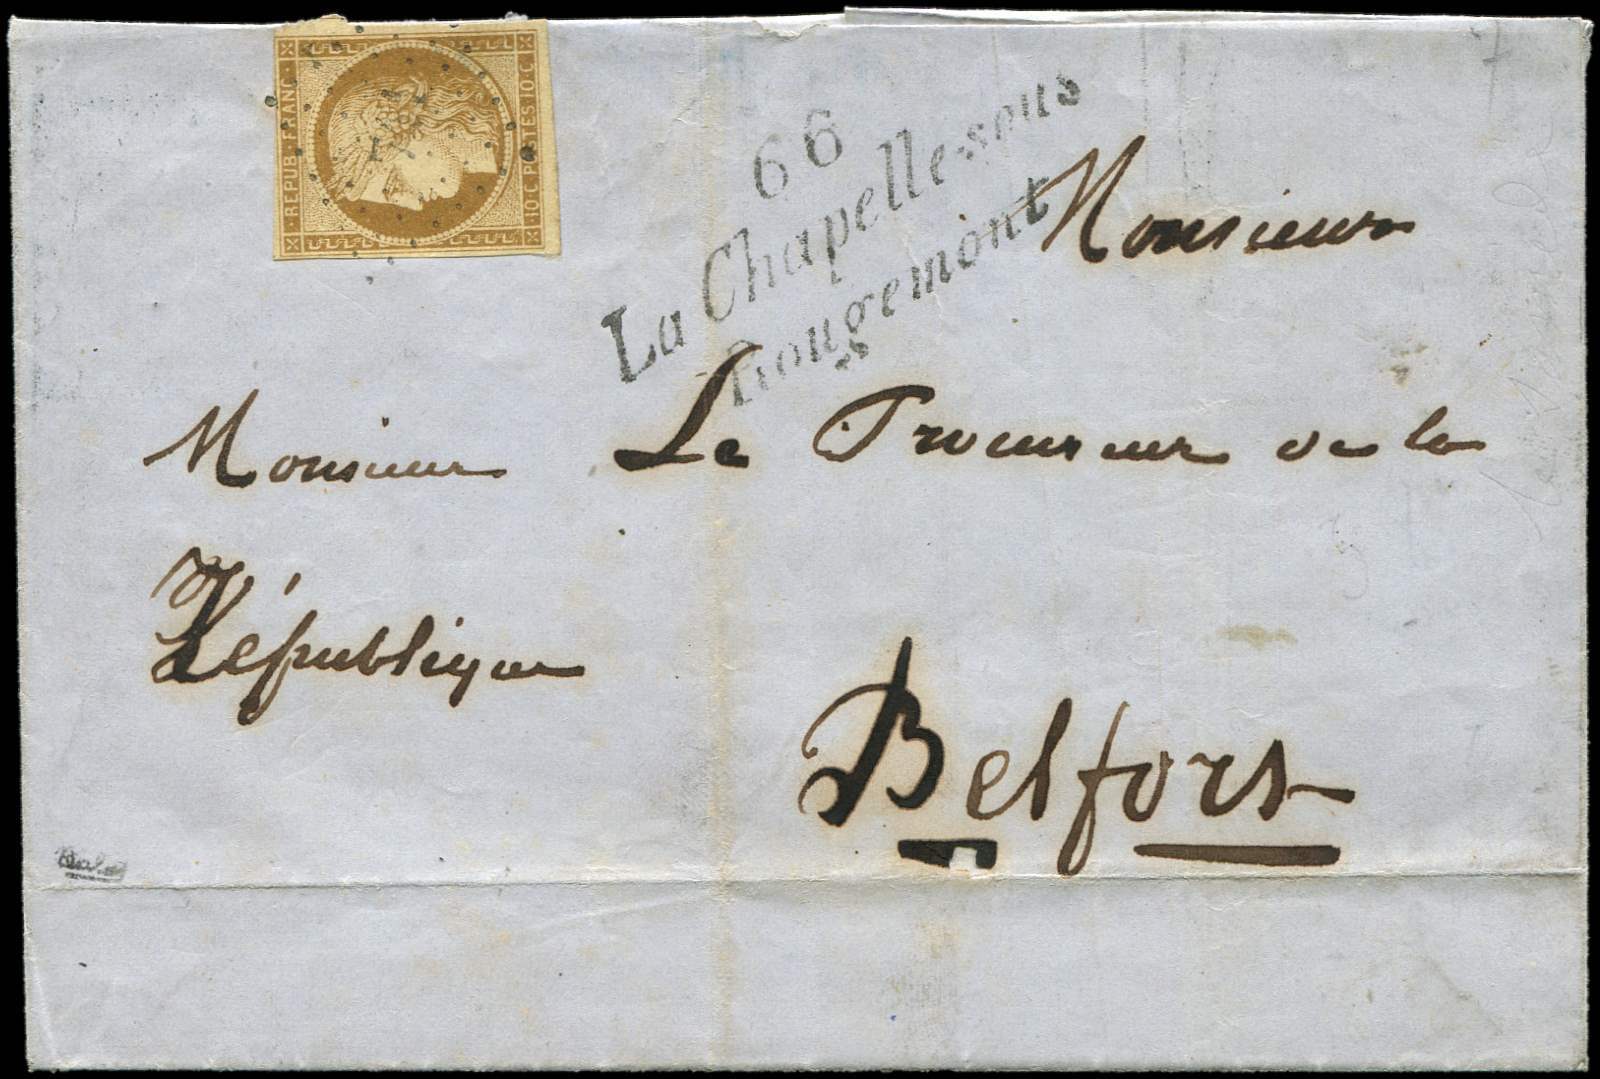 REPUB·FRANC·
·10·C·POSTES·10·C·
66
La Chapelle-sous
Rougemont
Monsieur
Monsieur Le Procureur de la
République
Belfort